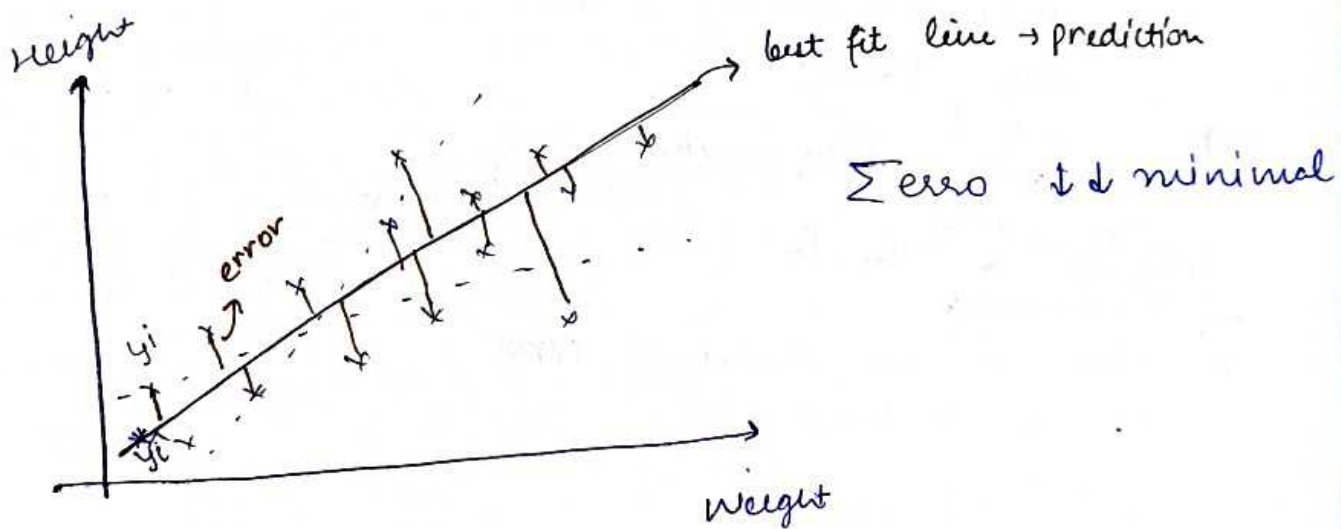 Height
best fit line → prediction
Σ erro ↓↓ minimal
error
yi
ŷi
Weight